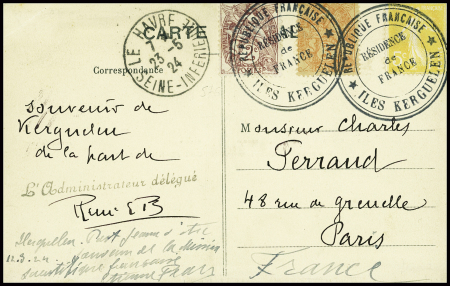 CARTE
LE HAVRE
7
23-5
24
SEINE-INFERIEURE
REPUBLIQUE FRANÇAISE
RÉSIDENCE
de
FRANCE
ILES KERGUELEN
REPUBLIQUE FRANÇAISE
RÉSIDENCE
de
FRANCE
ILES KERGUELEN
Correspondance
Souvenir de
Kerguelen
de la part de
L'Administrateur délégué
René EB
Kerguelen.
11.3.24
scientifique française
Monsieur Charles
Ferraud
48 rue de grenelle
Paris
France